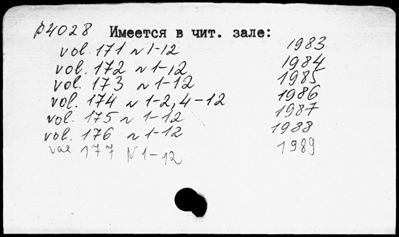 р4028 Имеется в чит. зале:
vol. 171 n 1-12 1983
vol. 172 n 1-12 1984
vol. 173 n 1-12 1985
vol. 174 n 1-2, 4-12 1986
vol. 175 n 1-12 1987
vol. 176 n 1-12 1988
vol 177 N 1-12 1989